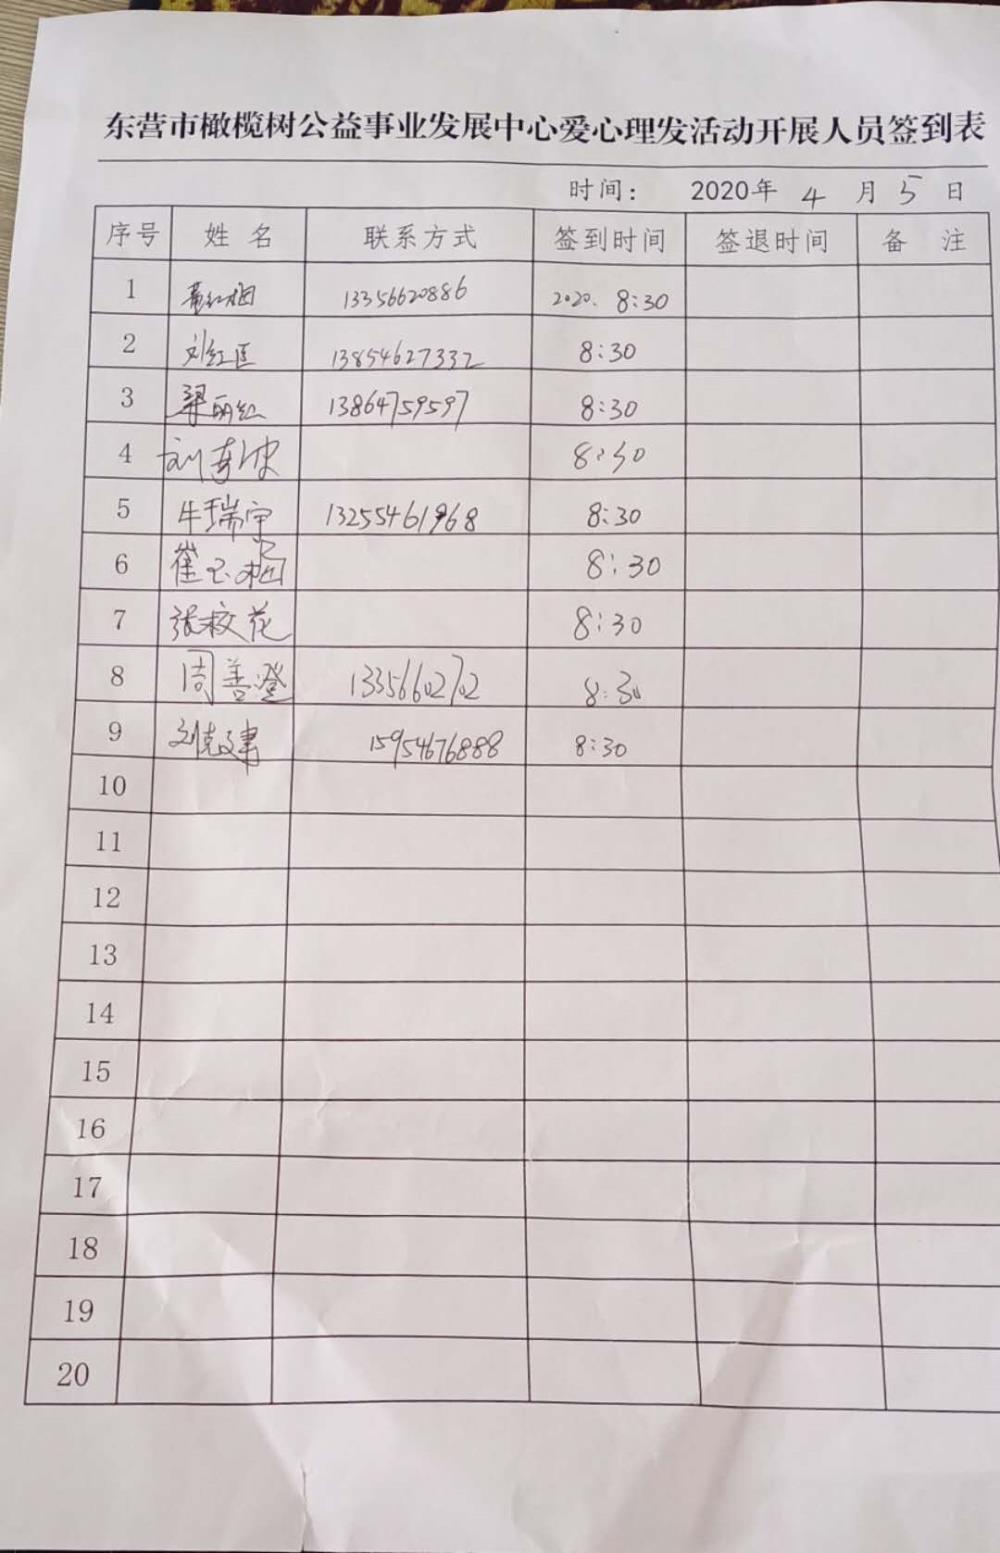 东营市橄榄树公益事业发展中心爱心理发活动开展人员签到表
时间： 2020年 4 月 5 日
序号 姓 名 联系方式 签到时间 签退时间 备 注
1 红梅 13356620886 2020. 8:30
2 刘红匡 13854627332 8:30
3 梁丽红 13864759597 8:30
4 刘 8:30
5 牛瑞宇 13255461968 8:30
6 崔玉梅 8:30
7 张校花 8:30
8 周善澄 13356602702 8:30
9 刘克建 15954676888 8:30
10
11
12
13
14
15
16
17
18
19
20